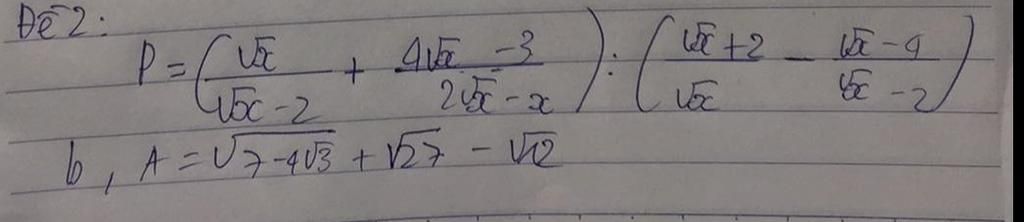 Đề 2:
P = (√x/(√x - 2) + (4√x - 3)/(2√x - x)) : ((√x + 2)/√x - (√x - 4)/(√x - 2))
b, A = √(7 - 4√3) + √27 - √12